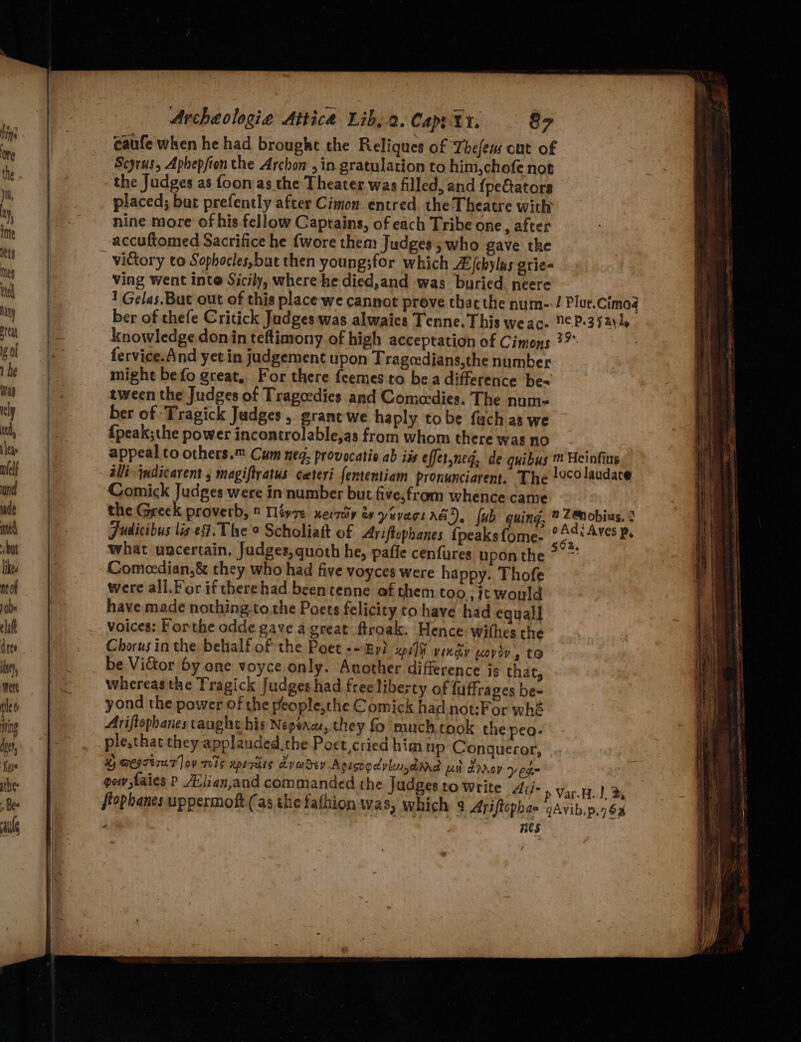 Archeologiæ Atticæ Lib. 2. Cap. 11. 87
caufe when he had brought the Reliques of Thefeus out of
Scyrus, Aphepfion the Archon , in gratulation to him,chofe not
the Judges as foon as the Theater was filled, and fpectators
placed; but prefently after Cimon entred the Theatre with
nine more of his fellow Captains, of each Tribe one , after
accuftomed Sacrifice he fwore them Judges ; who gave the
victory to Sophocles,but then young;for which Æfchylus grie-
ving went into Sicily, where he died,and was buried neere
l Gelas.But out of this place we cannot prove that the num-
ber of thefe Critick Judges was alwaies Tenne.This we ac-
knowledge don in teftimony of high acceptation of Cimons
fervice.And yet in judgement upon Tragœdians,the number
might be fo great. For there feemes to be a difference be-
tween the Judges of Tragœdies and Comœdies. The num-
ber of Tragick Judges , grant we haply to be fuch as we
fpeak;the power incontrolable,as from whom there was no
appeal to others.m Cum neq; provocatio ab iis effet,neq; de quibus
illi judicarent , magiftratus cæteri fententiam pronunciarent. The
Comick Judges were in number but five,from whence came
the Greek proverb, n Πέντε κριτῶν ἐν γόνασι fub quinq;
Judicibus lis eft.The o Scholiaft of Ariftophanes fpeaks fome-
what uncertain. Judges,quoth he, paffe cenfures upon the
Comœdian,& they who had five voyces were happy. Thofe
were all.For if there had been tenne of them too , it would
have made nothing to the Poets felicity to have had equall
voices: For the odde gave a great ftroak. Hence wifhes the
Chorus in the behalf of the Poet -- νικᾶν μονόν , to
be Victor by one voyce only. Another difference is that,
whereas the Tragick Judges had free liberty of fuffrages be-
yond the power of the people,the Comick had not:For whē
Ariftophanes taught his Νεφέλας, they fo much took the peo-
ple,that they applauded the Poet,cried him up Conqueror,
τοῖς κριταῖς ἄνωθεν Ἀριστοφάνην,ἀλλὰ μὴ ἄλλον γρά-
φειν,faies p Ælian,and commanded the Judges to write Ari-
ftophanes uppermoft (as the fafhion was, which q Ariftopha-
nes
l Plut.Cimoē
ne p.
m Heinfius
loco laudate
n Zenobius.
o Ad. Aves p.
562.
p Var.H. l. 2.
q Avib.p.563